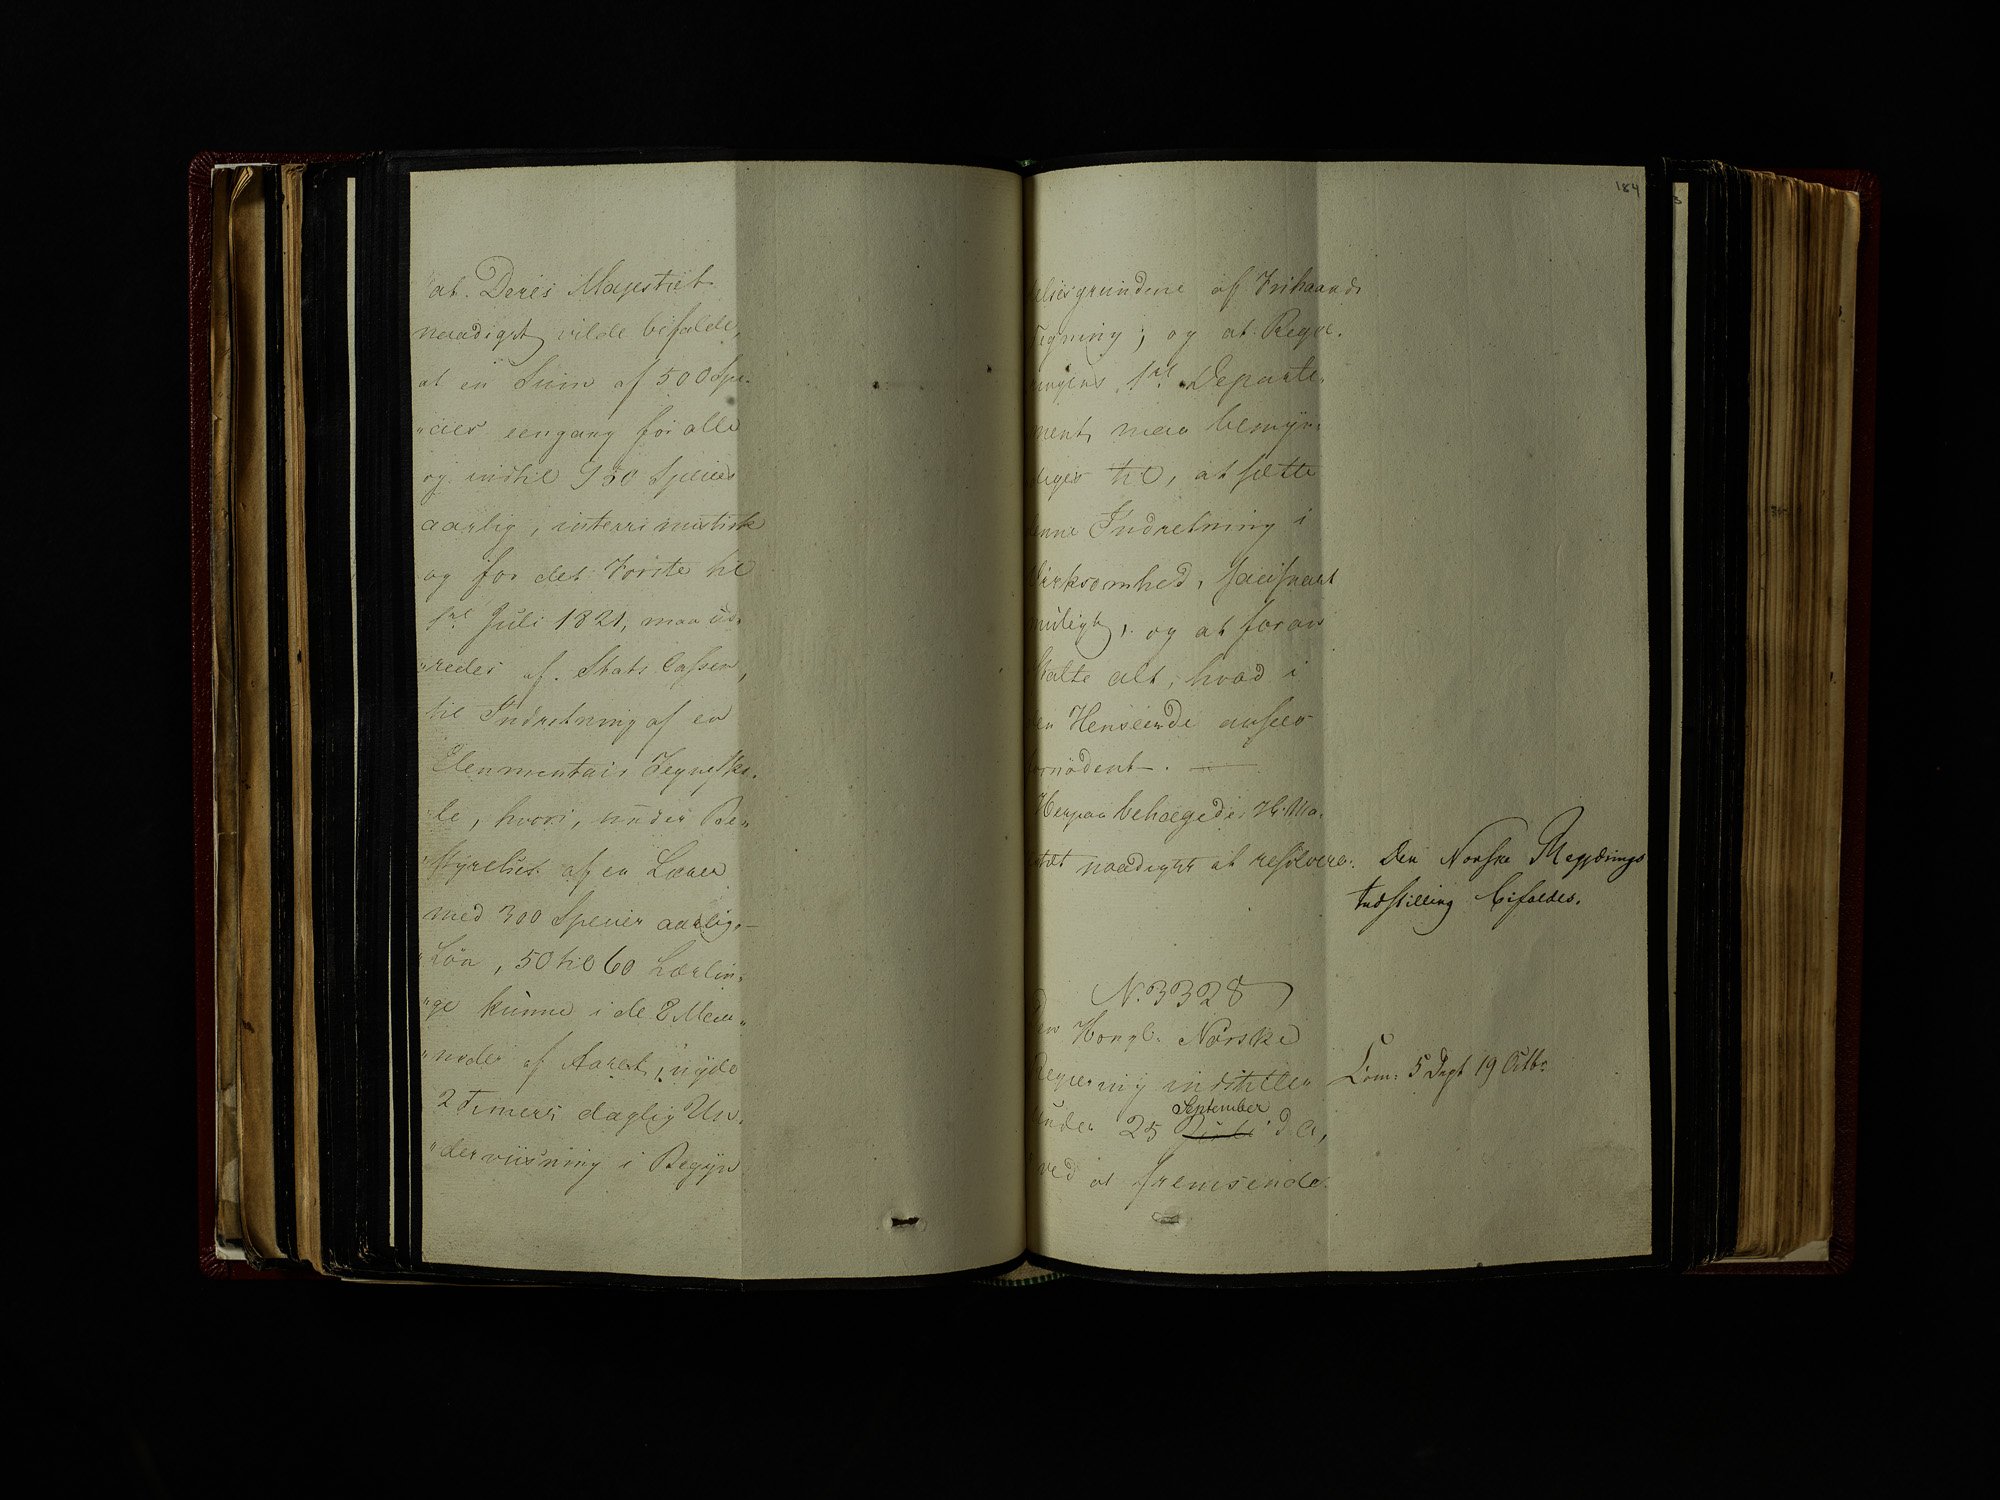 at Deres Majestæt
naadigst vilde bifalde,
at en Sum af 500 Spe-
"cier eengang for alle
og indtil 950 Specier
aarlig, interrimistisk
og for det Förste til
1ste Juli 1821, maa ud-
"redes af Stats Cassen,
til Indretning af en
Elementair Tegnesko-
le, hvori, under Be-
"styrelse af en Lærer
med 300 Specier aarlig
Lön, 50 til 60 Lærlin-
"ge kunne i de 8 Maa-
"neder af Aaret, nyde
2 Timers daglig Un-
"derviisning i Begyn
184
delsesgrundene af Frihaands
Tegning; og at Regje-
ringens 1ste Departe-
ment maa bemyn-
diges til, at sætte
denne Indretning i
Virksomhed, saasnart
muligt, og at foran
stalte alt, hvad i
den Henseende ansees
fornödent.
Herpaa behagede Hs: Ma-
jestæt naadigst at resolvere:
Den Norske Regjerings
Indstilling bifaldes.
N. 3328
Den Kongl. Norske
Regiering indstiller
under 25 September Juli d. A,
ved at fremsende
Com: 5 Dept 19 Octbr